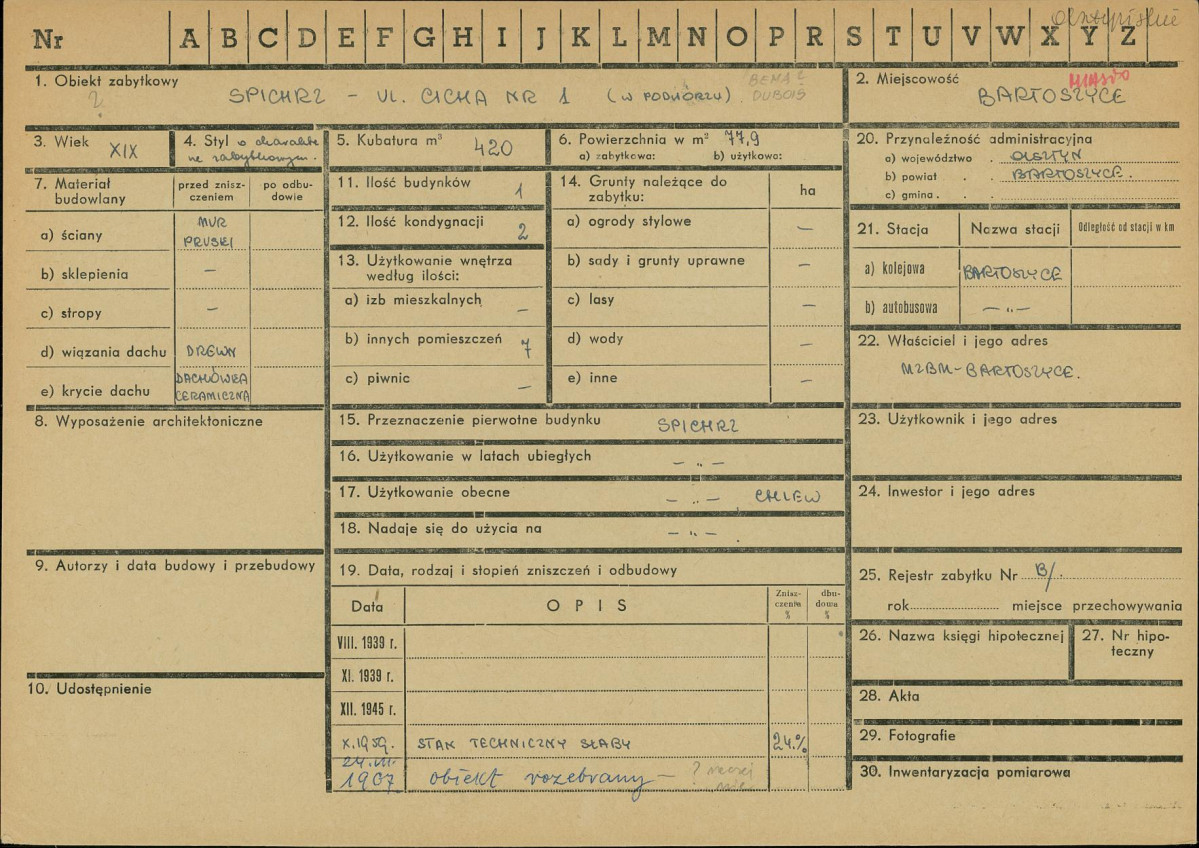 olsztyńskie
Nr A B C D E F G H I J K L M N O P R S T U V W X Y Z
1. Obiekt zabytkowy
?
SPICHRZ – UL. CICHA NR 1 (W PODWÓRZU)
BEMA 2
DUBOIS
2. Miejscowość
MIASTO
BARTOSZYCE
3. Wiek XIX
4. Styl o charakte
rze zabytkowym.
5. Kubatura m³ 420
6. Powierzchnia w m² 77,9
a) zabytkowa: b) użytkowa:
7. Materiał
budowlany
przed znisz-
czeniem
po odbu-
dowie
a) ściany MUR
PRUSKI
b) sklepienia –
c) stropy –
d) wiązania dachu DREWN
e) krycie dachu DACHÓWKA
CERAMICZNA
8. Wyposażenie architektoniczne
9. Autorzy i data budowy i przebudowy
10. Udostępnienie
11. Ilość budynków 1
12. Ilość kondygnacji 2
13. Użytkowanie wnętrza
według ilości:
a) izb mieszkalnych –
b) innych pomieszczeń 7
c) piwnic –
14. Grunty należące do
zabytku:
ha
a) ogrody stylowe –
b) sady i grunty uprawne –
c) lasy –
d) wody –
e) inne –
15. Przeznaczenie pierwotne budynku SPICHRZ
16. Użytkowanie w latach ubiegłych – „ –
17. Użytkowanie obecne – „ – CHLEW
18. Nadaje się do użycia na – „ –
19. Data, rodzaj i stopień zniszczeń i odbudowy
Data OPIS
Znisz-
czenia
%
dbu-
dowa
%
VIII. 1939 r.
XI. 1939 r.
XII. 1945 r.
X.1959. STAN TECHNICZNY SŁABY 24.%
24.III.
1967 obiekt rozebrany – ? raczej
nie
20. Przynależność administracyjna
a) województwo . OLSZTYN
b) powiat . . BARTOSZYCE.
c) gmina . . .
21. Stacja Nazwa stacji Odległość od stacji w km
a) kolejowa BARTOSZYCE
b) autobusowa – „ –
22. Właściciel i jego adres
MZBM – BARTOSZYCE.
23. Użytkownik i jego adres
24. Inwestor i jego adres
25. Rejestr zabytku Nr B/.
rok miejsce przechowywania
26. Nazwa księgi hipotecznej
27. Nr hipo-
teczny
28. Akta
29. Fotografie
30. Inwentaryzacja pomiarowa